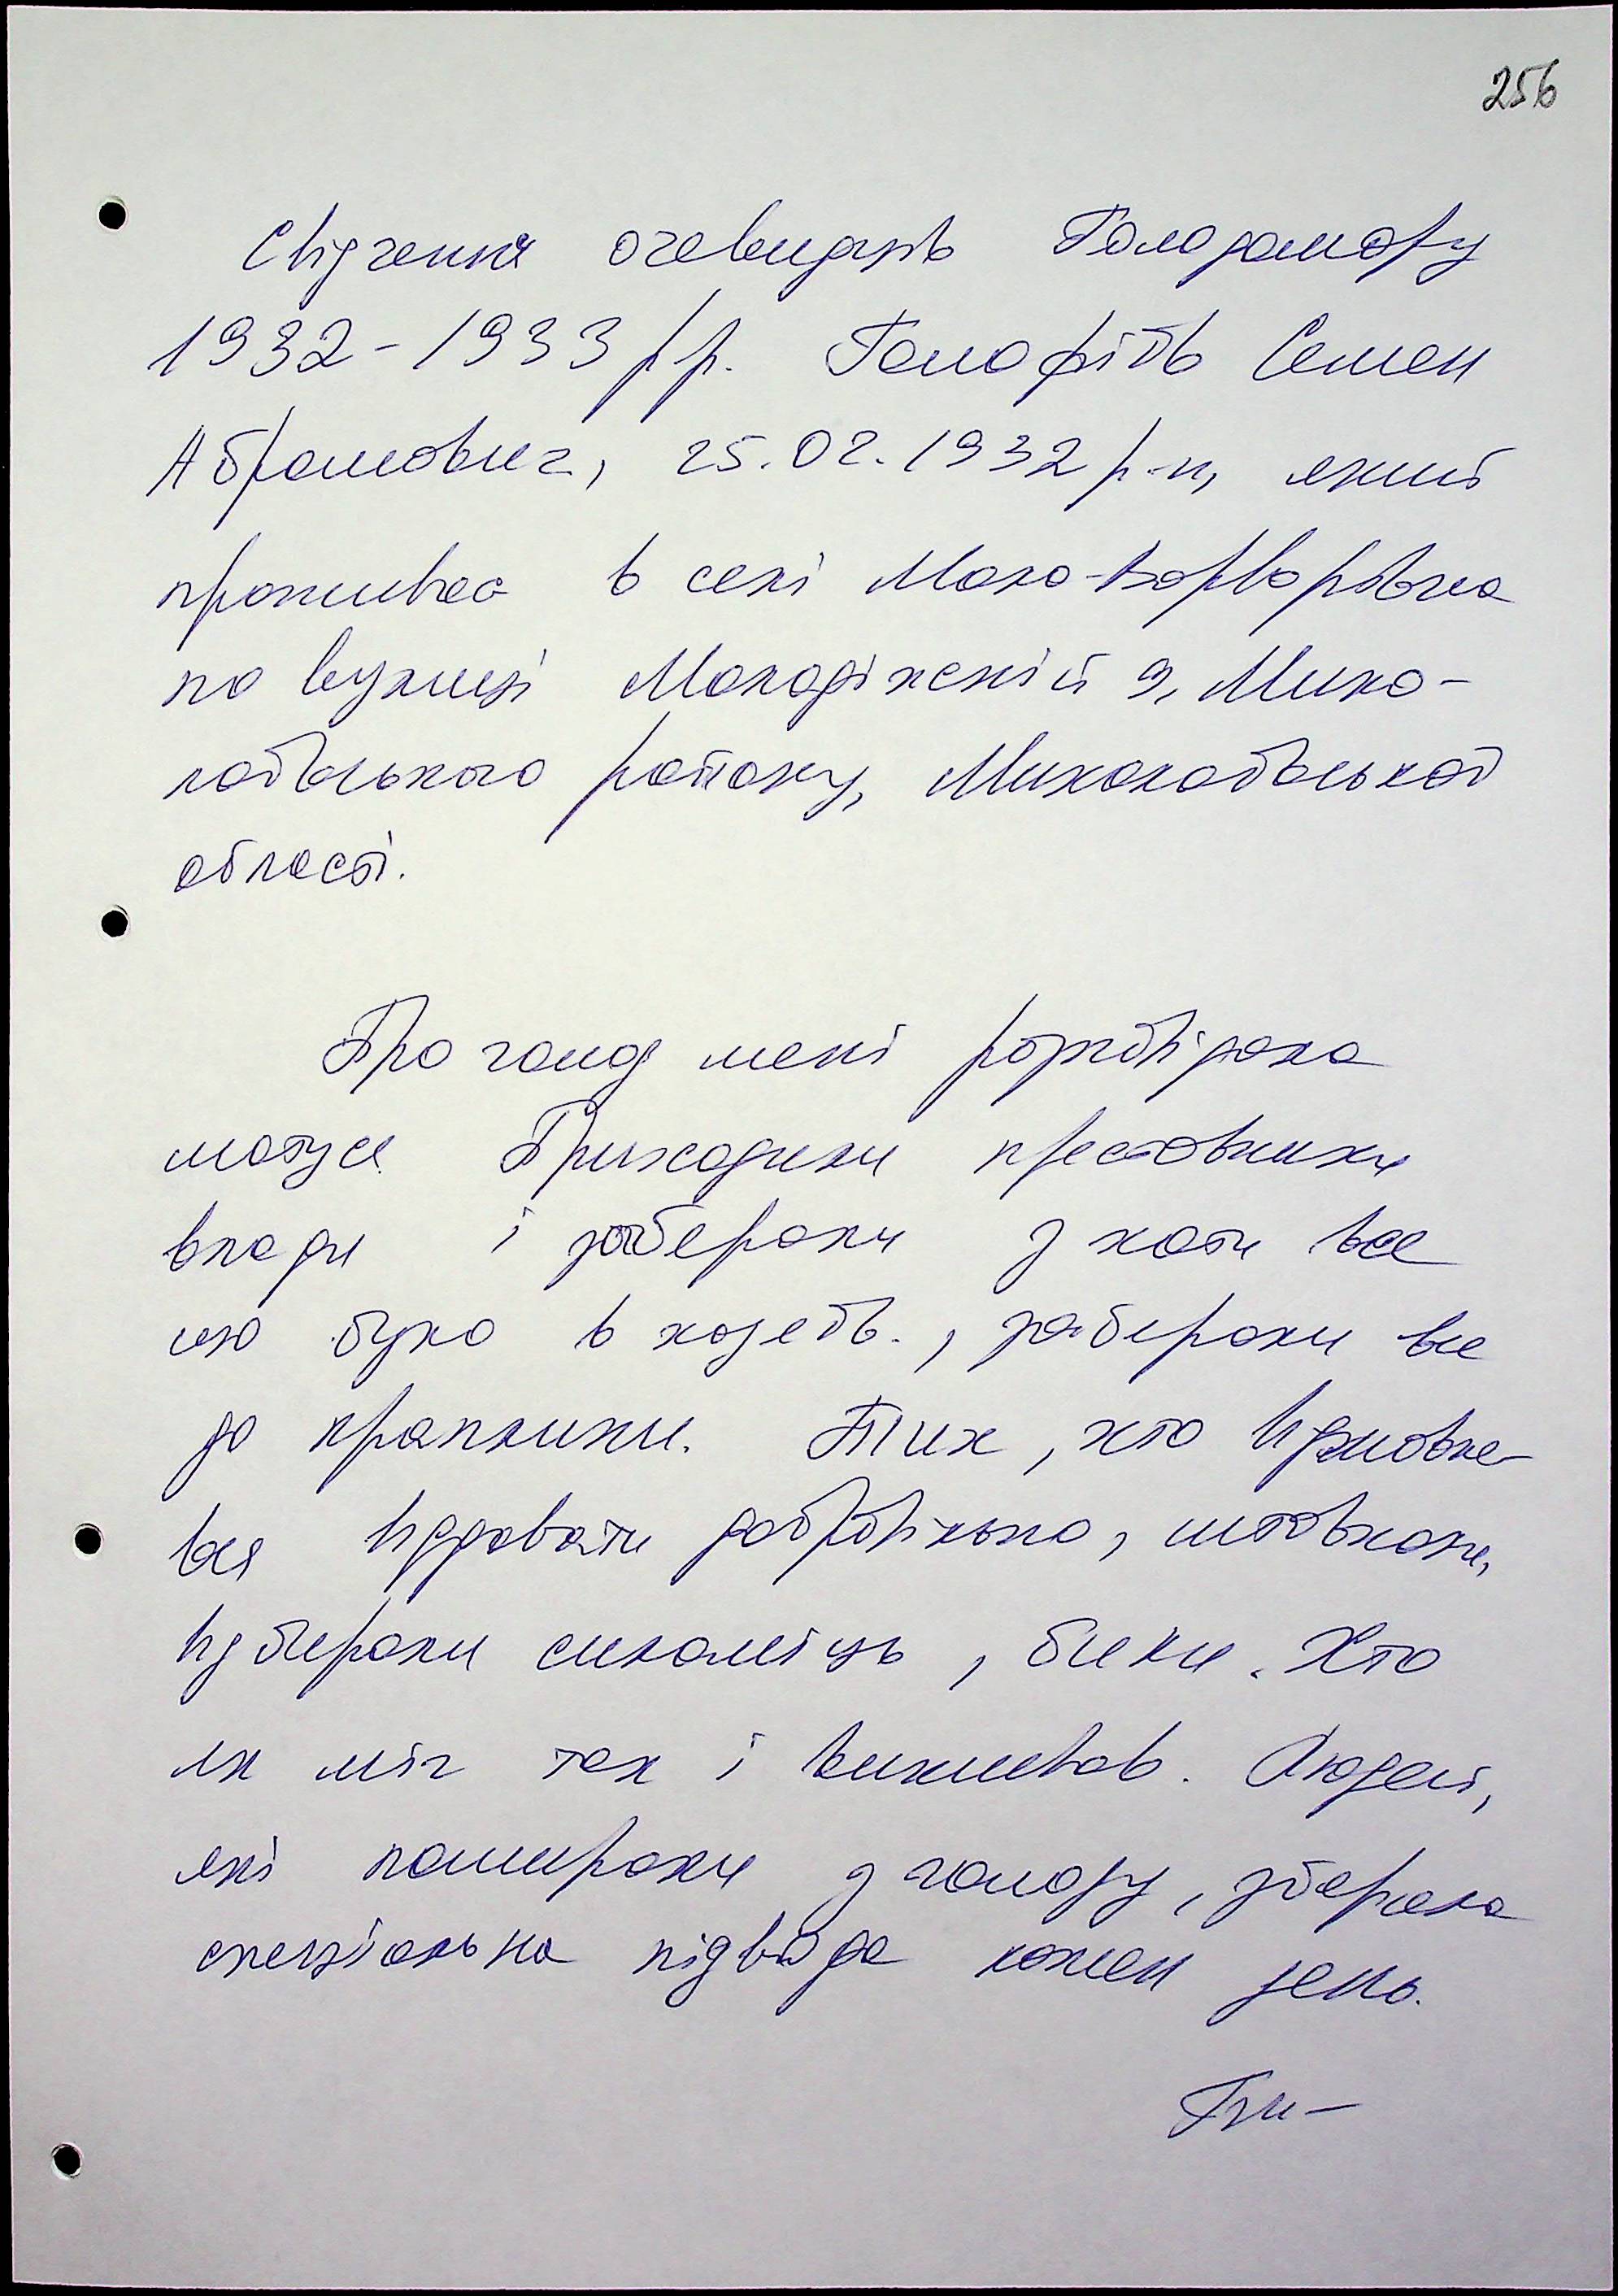 256
Свідчення очевидців Голодомору
1932-1933 рр. Голофіїв Семен
Абрамович, 25.02.1932 р-н, який
проживає в селі Мала-Варварівка
по вулиці Молодіжній 9, Мико-
лаївського району, Миколаївської
області.
Про голод мені розповідала
матуся. Приходили представники
влади і забирали з хати все
що було в хазяїв., забирали все
до краплини. Тих, хто відмовля-
вся віддавати добровільно, штовхали,
відбирали силоміць, били. Хто
як міг так і виживав. Людей,
які помирали з голоду, збирала
спеціальна підвода кожен день.